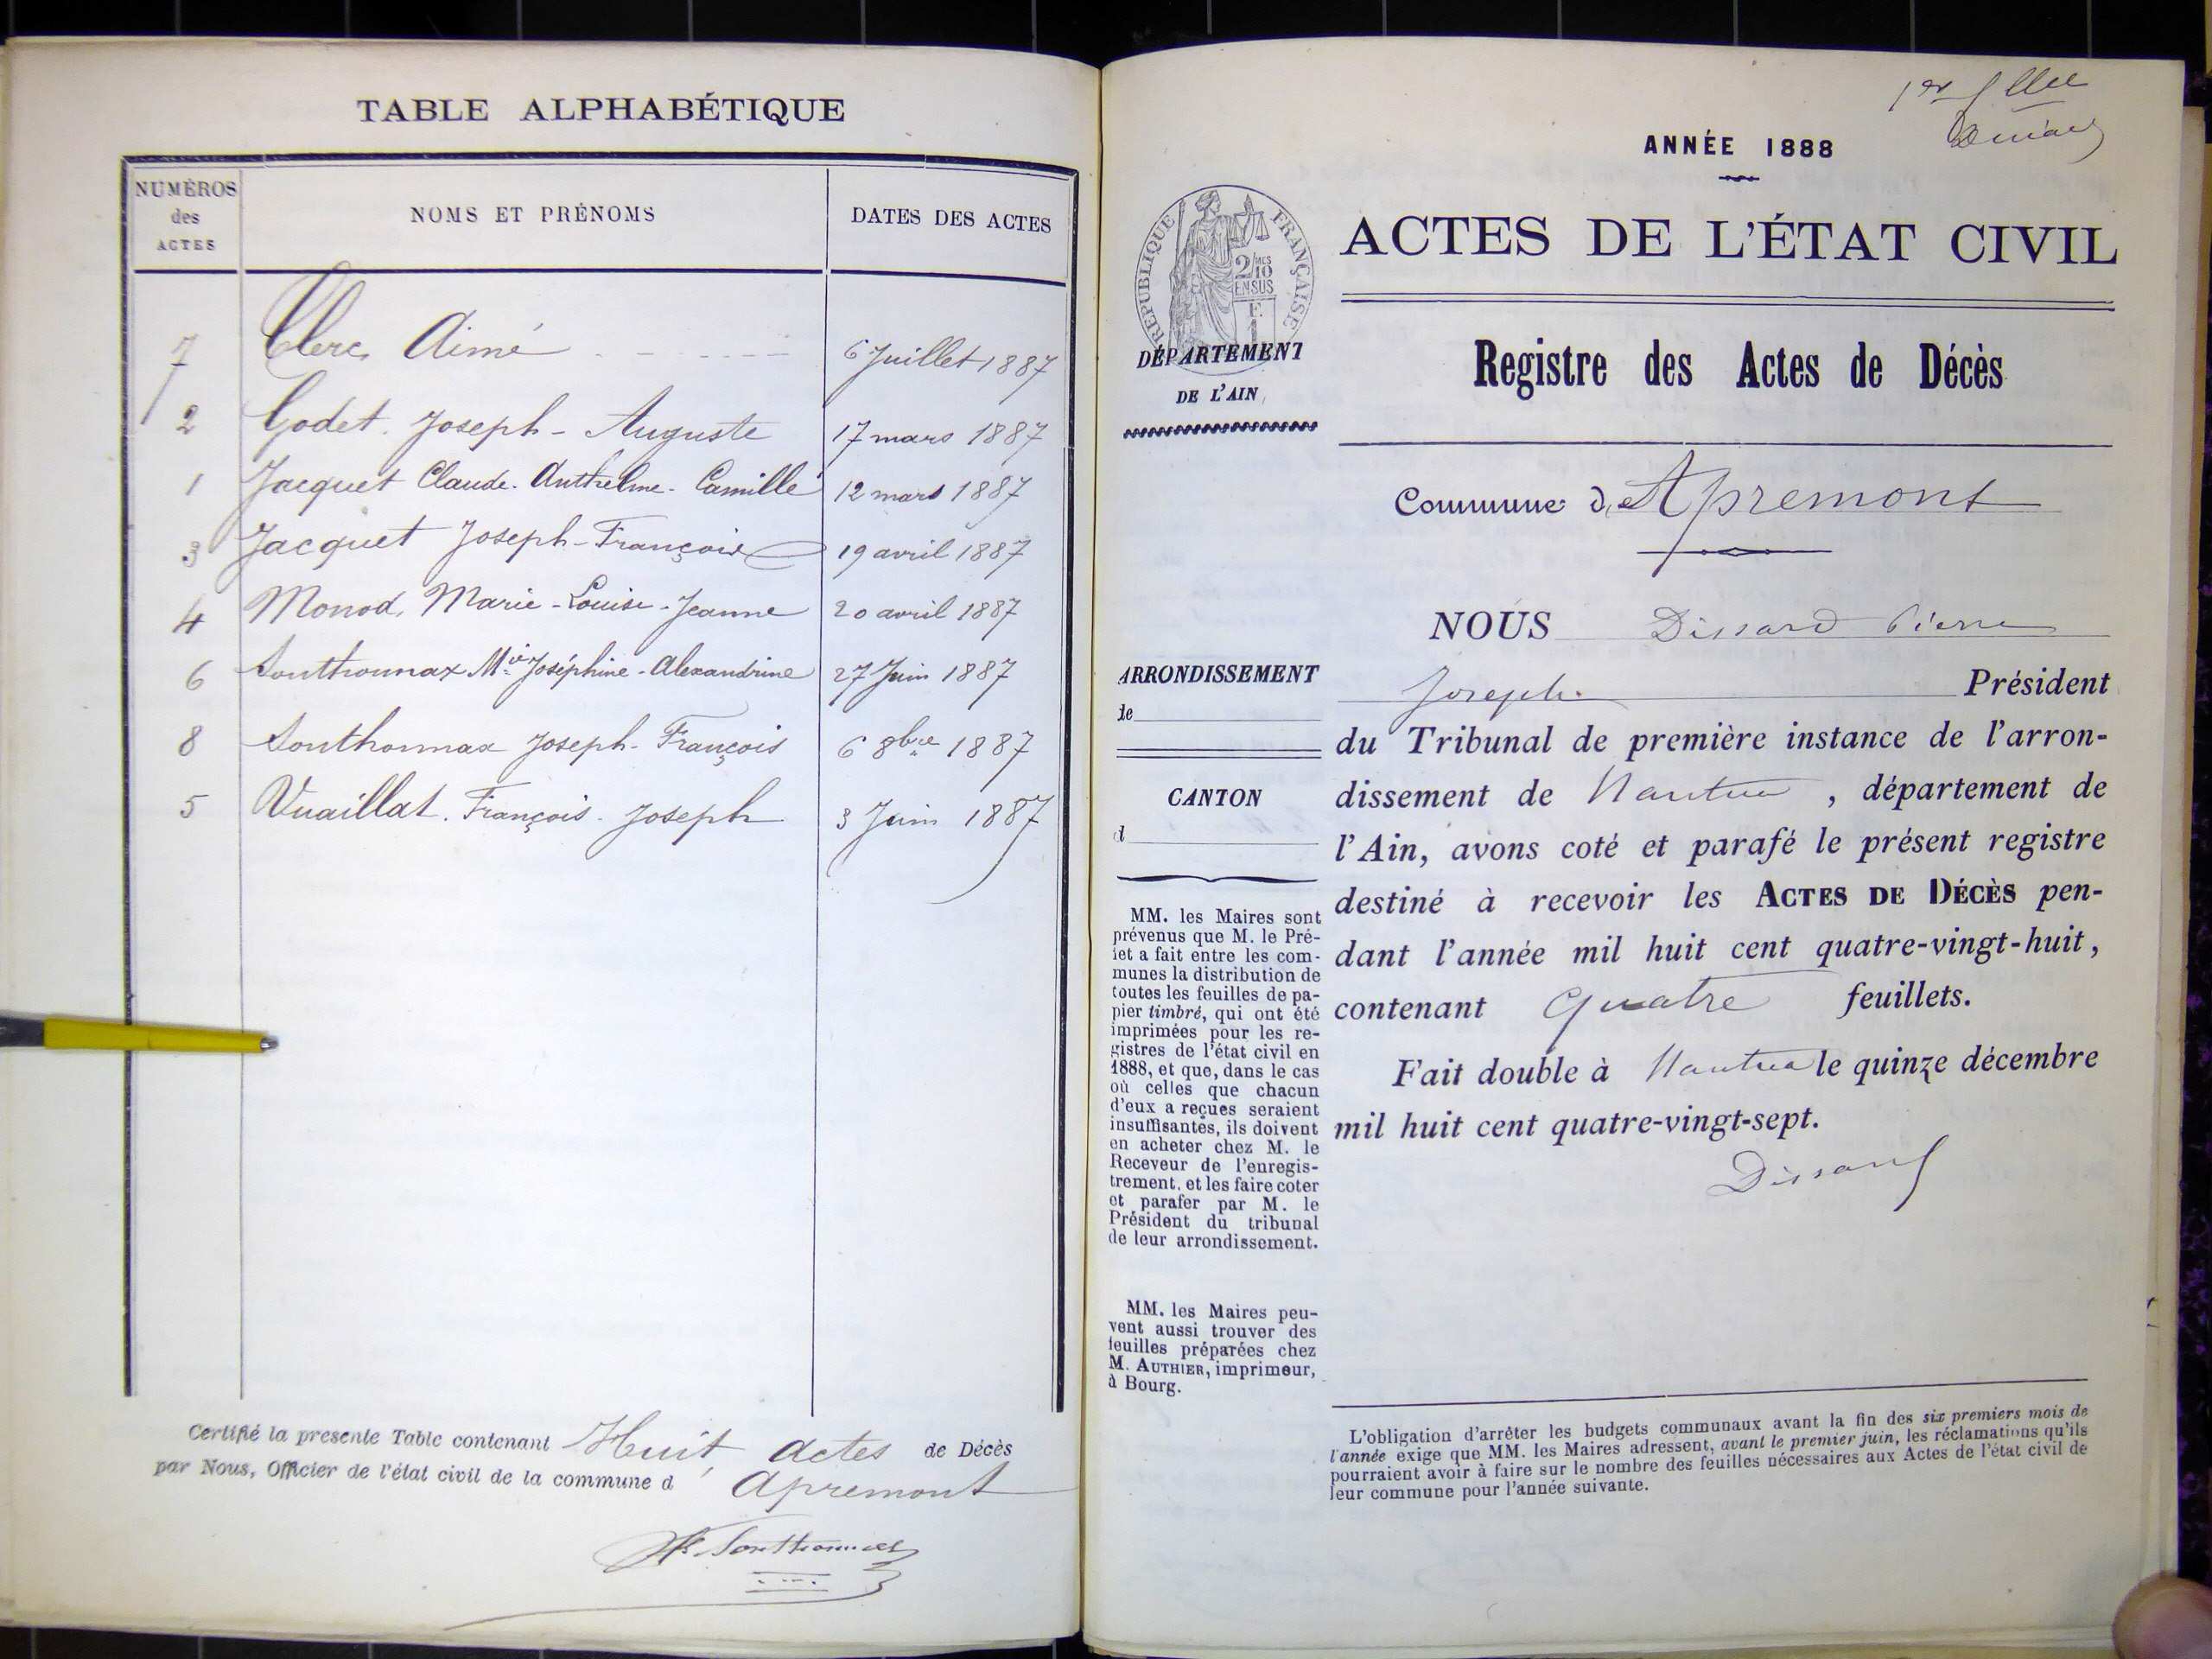 TABLE ALPHABÉTIQUE
NUMÉROS des ACTES NOMS ET PRÉNOMS DATES DES ACTES
7 Clerc Aimé 6 Juillet 1887
2 Godet Joseph-Auguste 17 mars 1887
1 Jacquet Claude-Anthelme-Camille 12 mars 1887
3 Jacquet Joseph-François 19 avril 1887
4 Monod, Marie-Louise-Jeanne 20 avril 1887
6 Sonthonnax Mie Joséphine-Alexandrine 27 Juin 1887
8 Sonthonnax Joseph-François 6 8bre 1887
5 Vuaillat François-Joseph 3 Juin 1887
Certifié la presente Table contenant Huit actes de Décès
par Nous, Officier de l'état civil de la commune d Apremont
Sonthonnax
1er
ANNÉE 1888
ACTES DE L'ÉTAT CIVIL
RÉPUBLIQUE FRANÇAISE
2/10 MES
EN SUS
F.
1
DÉPARTEMENT
DE L'AIN
Registre des Actes de Décès
Commune d'Apremont
NOUS Dissard Pierre
Joseph Président
du Tribunal de première instance de l'arron-
dissement de Nantua, département de
l'Ain, avons coté et parafé le présent registre
destiné à recevoir les ACTES DE DÉCÈS pen-
dant l'année mil huit cent quatre-vingt-huit,
contenant quatre feuillets.
Fait double à Nantua le quinze décembre
mil huit cent quatre-vingt-sept.
Dissard
ARRONDISSEMENT
de
CANTON
d
MM. les Maires sont
prévenus que M. le Pré-
fet a fait entre les com-
munes la distribution de
toutes les feuilles de pa-
pier timbré, qui ont été
imprimées pour les re-
gistres de l'état civil en
1888, et que, dans le cas
où celles que chacun
d'eux a reçues seraient
insuffisantes, ils doivent
en acheter chez M. le
Receveur de l'enregis-
trement, et les faire coter
et parafer par M. le
Président du tribunal
de leur arrondissement.
MM. les Maires peu-
vent aussi trouver des
feuilles préparées chez
M. AUTHIER, imprimeur,
à Bourg.
L'obligation d'arrêter les budgets communaux avant la fin des six premiers mois de
l'année exige que MM. les Maires adressent, avant le premier juin, les réclamations qu'ils
pourraient avoir à faire sur le nombre des feuilles nécessaires aux Actes de l'état civil de
leur commune pour l'année suivante.